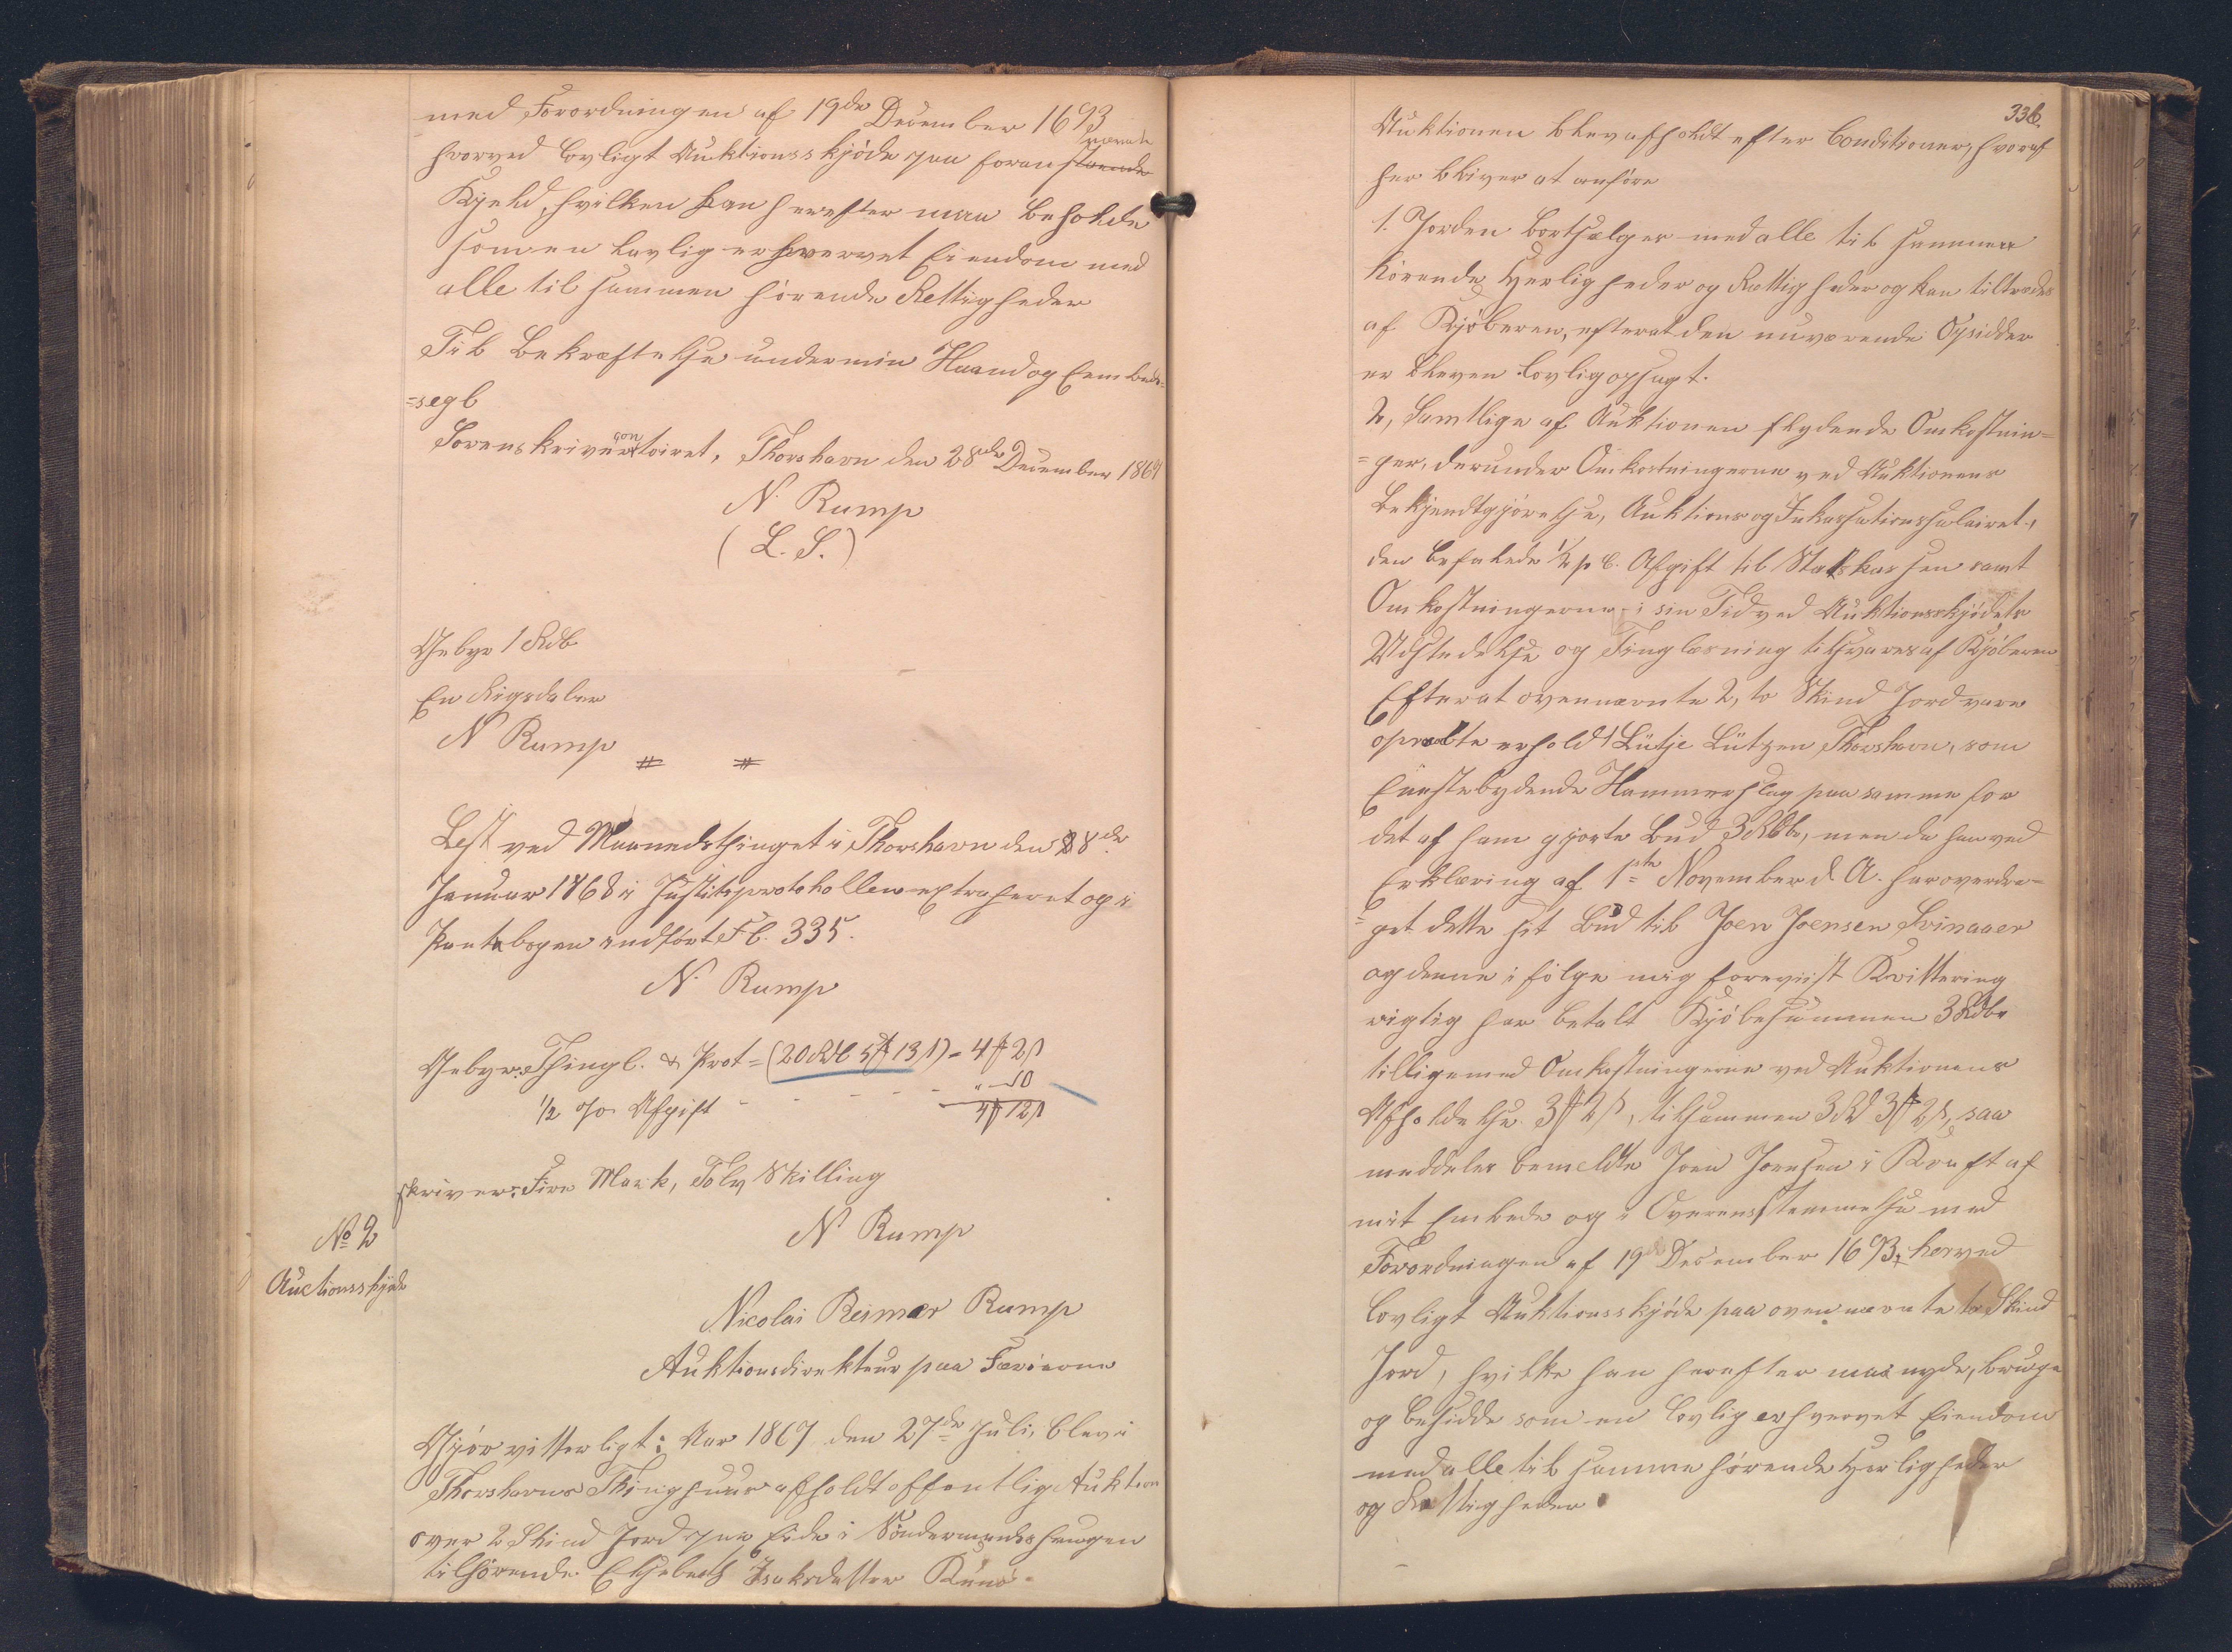 med Forordningen af 19de December 1693
nævnte
hvorved lovligt Auktionsskjøde paa foranstaaende
Kjeld, hvilken han herefter maa beholde
som en lovlig erhvervet Eiendom med
alle til sammen hörende Rettigheder
Til Bekræftelse under min Haand og Embeds=
=segl
Sorenskrivercontoiret, Thorshavn den 28de December 1867
N. Rump
(L. S.)
Gebyr 1 Rdl
En Rigsdaler
N Rump
Lest ved Maanedsthinget i Thorshavn den 28de
Januar 1868 i Justitsprotokollen extraheret og i
Pantebogen indført Fl. 335.
N. Rump
Gebyr: Thingl. & Prot = (20 Rdl 5 ₰ 13 ß) - 4 ₰ 2 ß
½ o/o Afgift - - - - - " - 10
4 ₰ 12 ß
skriver: Fire Mark, Tolv Skilling
N Rump
No 2
Auctionsskjøde
Nicolai Reimer Rump
Auktionsdirekteur paa Færöerne
Gjör vitterligt: Aar 1867 den 27de Juli, blev i
Thorshavns Thinghuus afholdt offentlig Auktion
over 2 Skind Jord paa Eide i Söndermandshaugen
tilhörende Elsebeth Isaksdatter Kunö-
336.
Auktionen blev afholdt efter Conditioner, hvoraf
her bliver at anföre
1. Jorden bortsælges med alle til samme
hörende Herligheder og Rettigheder og kan tiltrædes
af Kjöberen, efterat den nuværende Opsidder
er bleven lovlig opsagt.
2, Samtlige af Auktionen flydende Omkostnin=
=ger, derunder Omkostningerne ved Auktionens
Bekjendtgjörelse, Auktions og Inkassationssalairet,
den befalede ½ p C. Afgift til Statskassen samt
Omkostningerne i sin Tid ved Auktionsskjödets
Udstedelse og Tinglæsning tilsvares af Kjöberen
Efterat ovennævnte 2, to Skind Jord vare
opraabte erholdt Lütje Lützen Thorshavn, som
höiestbydende Hammerslag paa samme for
det af ham gjorte Bud 3 Rdlr, men da han ved
Erklæring af 1ste November d. A. har overdra=
=get dette sit Bud til Joen Joensen Svinaaer
og denne i fölge mig foreviist Kvittering
rigtig har betalt Kjöbesummen 3 Rdlr
tilligemed Omkostningerne ved Auktionens
Afholdelse 3 ₰ 2 ß, tilsammen 3 Rd 3 ₰ 2 ß, saa
meddeles bemeldte Joen Joensen i Kraft af
mit Embede og i Overensstemmelse med
Forordningen af 19 December 1693, herved
lovligt Auktionsskjöde paa ovennævnte to Skind
Jord, hvilke han herefter maa nyde, bruge
og besidde som en lovlig erhvervet Eiendom
med alle til samme hörende Herligheder
og Rettigheder